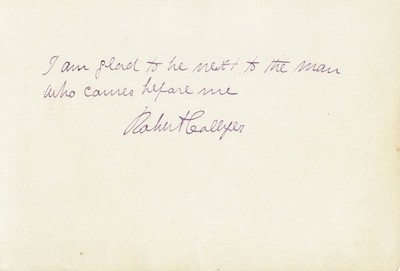 I am glad to be next to the man
who comes before me
Robert Collyer